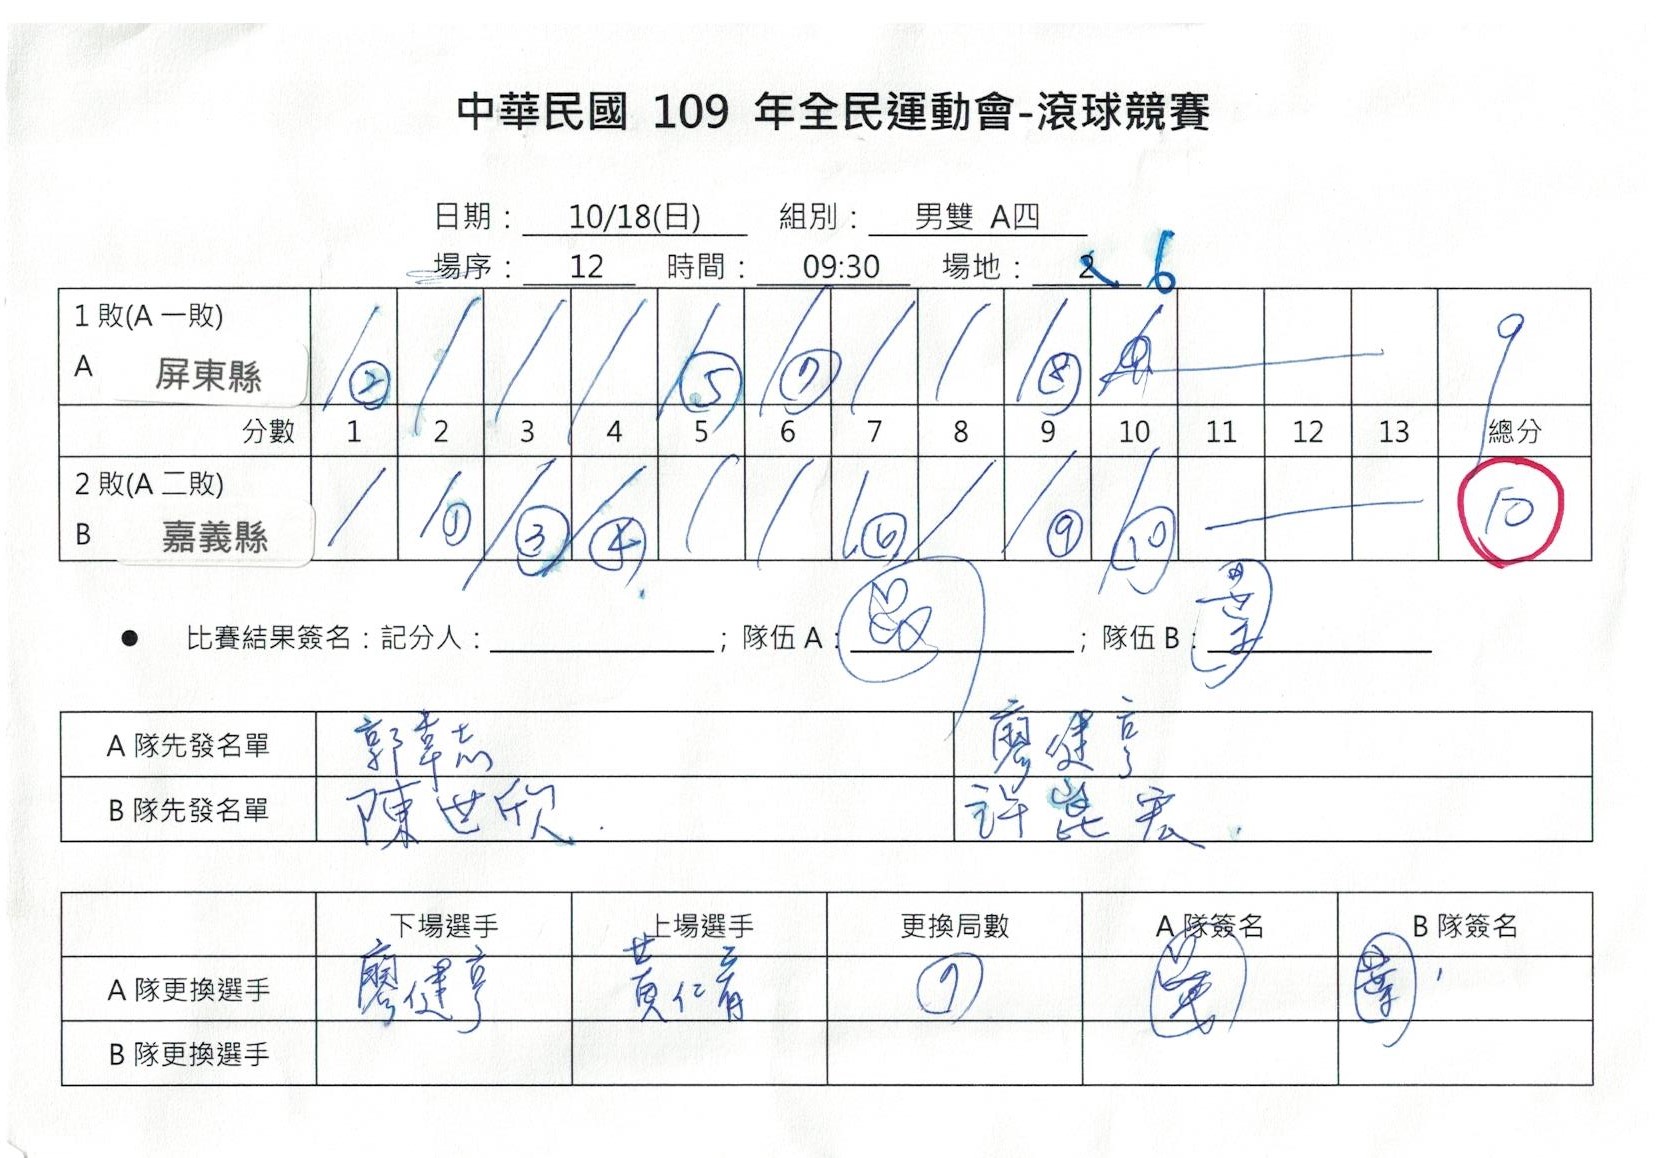 中華民國 109 年全民運動會-滾球競賽
日期： 10/18(日) 組別： 男雙 A四
場序： 12 時間： 09:30 場地： 2 6
1 敗(A 一敗)
A 屏東縣 ② ⑤ ⑦ ⑧ 9
分數 1 2 3 4 5 6 7 8 9 10 11 12 13 總分
2 敗(A 二敗)
B 嘉義縣 ① ③ ④ ⑥ ⑨ ⑩ 10
● 比賽結果簽名：記分人： ；隊伍 A： ；隊伍 B：
A 隊先發名單 郭韋志 廖健亨
B 隊先發名單 陳世欣 許崑宏
下場選手 上場選手 更換局數 A 隊簽名 B 隊簽名
A 隊更換選手 廖健亨 黃仁育 ⑦
B 隊更換選手